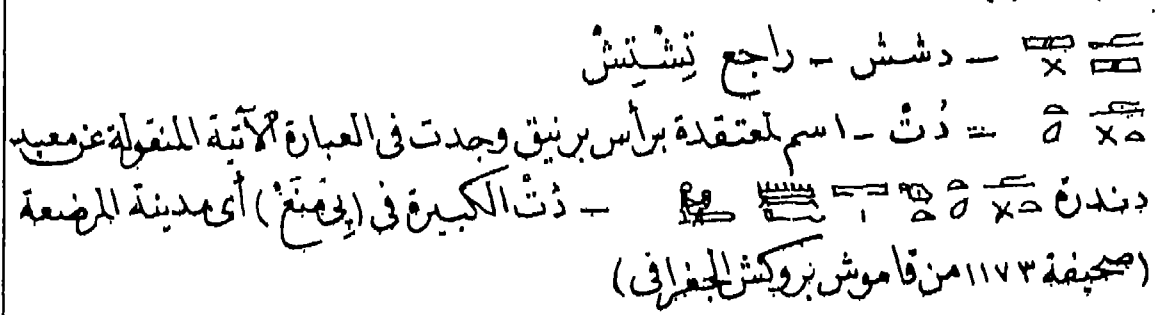 – دشش – راجع تِشْتِشْ
= دُتْ – اسم لمعتقدة برأس برنيق وجدت فى العبارة الآتية المنقولة عن معبد
دندرة – دُتْ الكبيرة فى (پى مِنَعْ) أى مدينة المرضعة
(صحيفة ١١٧٣ من قاموش بروكش الجغرافى)